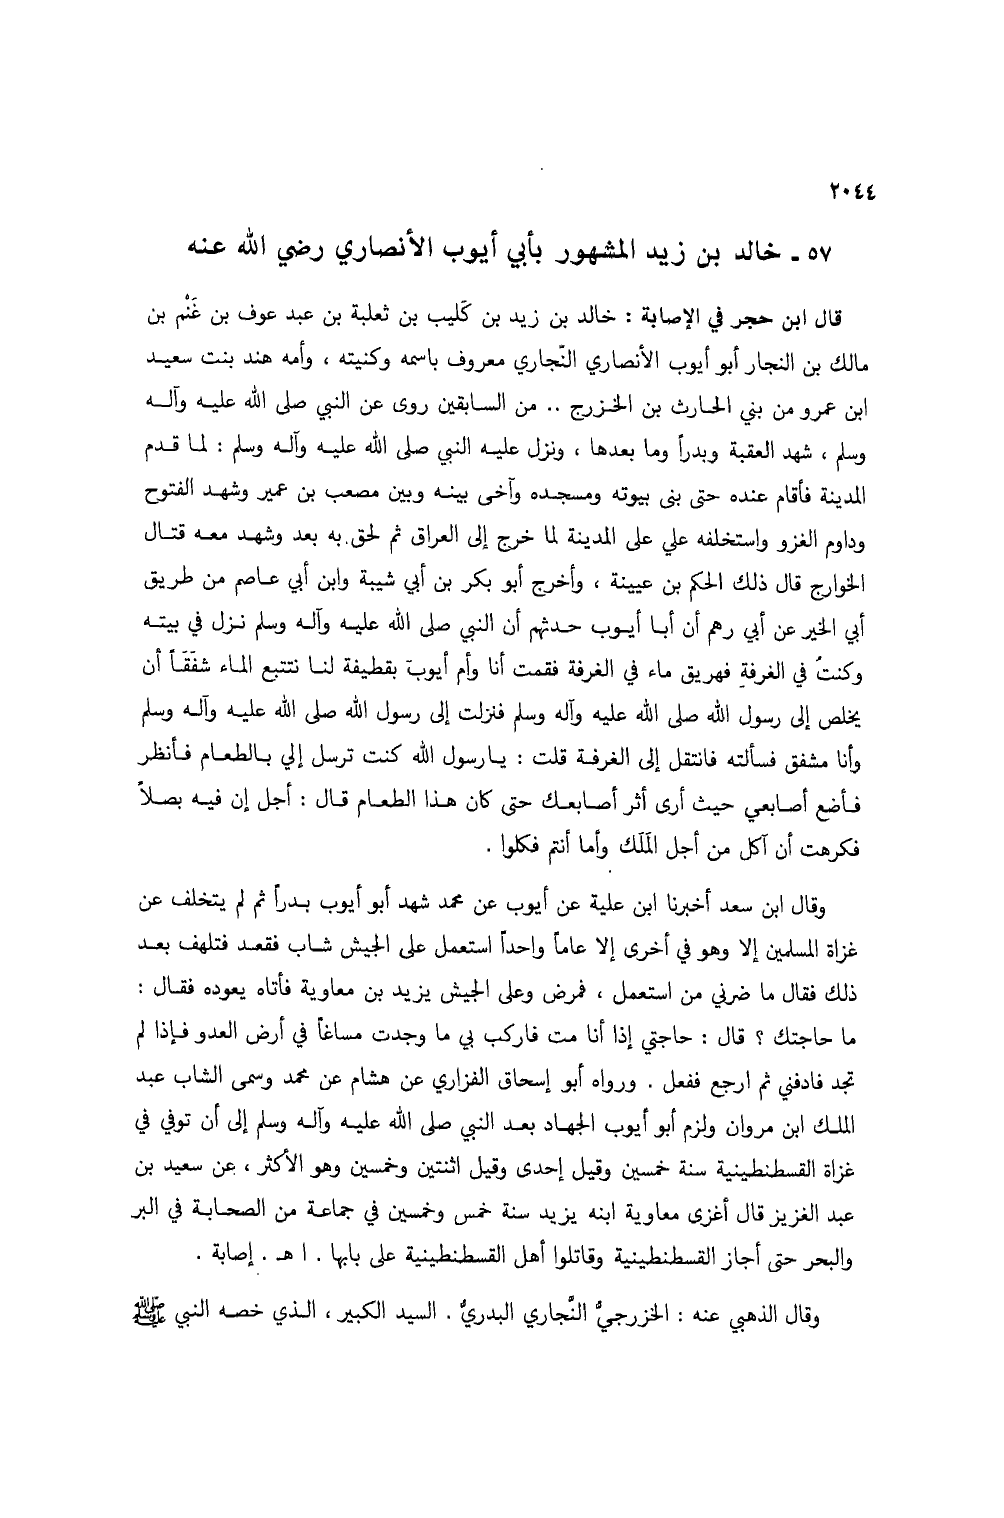 ٢٠٤٤
٥٧ - خالد بن زيد المشهور بأبي أيوب الأنصاري رضي الله عنه
قال ابن حجر في الإصابة : خالد بن زيد بن كَليب بن ثعلبة بن عبد عوف بن غَنْم بن
مالك بن النجار أبو أيوب الأنصاري النّجاري معروف باسمه وكنيته ، وأمه هند بنت سعيد
ابن عمرو من بني الحارث بن الخزرج .. من السابقين روى عن النبي صلى الله عليه وآله
وسلم ، شهد العقبة وبدراً وما بعدها ، ونزل عليه النبي صلى الله عليه وآله وسلم : لما قدم
المدينة فأقام عنده حتى بنى بيوته ومسجده وآخى بينه وبين مصعب بن عمير وشهد الفتوح
وداوم الغزو واستخلفه علي على المدينة لما خرج إلى العراق ثم لحق به بعد وشهد معه قتال
الخوارج قال ذلك الحكم بن عيينة ، وأخرج أبو بكر بن أبي شيبة وابن أبي عاصم من طريق
أبي الخير عن أبي رهم أن أبا أيوب حدثهم أن النبي صلى الله عليه وآله وسلم نزل في بيته
وكنتُ في الغرفةِ فهريق ماء في الغرفة فقمت أنا وأم أيوبَ بقطيفة لنا نتتبع الماء شفَقَاً أن
يخلص إلى رسول الله صلى الله عليه وآله وسلم فنزلت إلى رسول الله صلى الله عليه وآله وسلم
وأنا مشفق فسألته فانتقل إلى الغرفة قلت : يارسول الله كنت ترسل إلي بالطعام فأنظر
فأضع أصابعي حيث أرى أثر أصابعك حتى كان هذا الطعام قال : أجل إن فيه بصلاً
فكرهت أن آكل من أجل المَلَك وأما أنتم فكلوا .
وقال ابن سعد أخبرنا ابن علية عن أيوب عن محمد شهد أبو أيوب بدراً ثم لم يتخلف عن
غزاة المسلمين إلا وهو في أخرى إلا عاماً واحداً استعمل على الجيش شاب فقعد فتلهف بعد
ذلك فقال ما ضرني من استعمل ، فمرض وعلى الجيش يزيد بن معاوية فأتاه يعوده فقال :
ما حاجتك ؟ قال : حاجتي إذا أنا مت فاركب بي ما وجدت مساغاً في أرض العدو فإذا لم
تجد فادفني ثم ارجع ففعل . ورواه أبو إسحاق الفزاري عن هشام عن محمد وسمى الشاب عبد
الملك ابن مروان ولزم أبو أيوب الجهاد بعد النبي صلى الله عليه وآله وسلم إلى أن توفي في
غزاة القسطنطينية سنة خمسين وقيل إحدى وقيل اثنتين وخمسين وهو الأكثر ، عن سعيد بن
عبد العزيز قال أغزى معاوية ابنه يزيد سنة خمس وخمسين في جماعة من الصحابة في البر
والبحر حتى أجاز القسطنطينية وقاتلوا أهل القسطنطينية على بابها . ا هـ . إصابة .
وقال الذهبي عنه : الخزرجيُّ النَّجاري البدريُّ . السيد الكبير ، الذي خصه النبي ﷺ